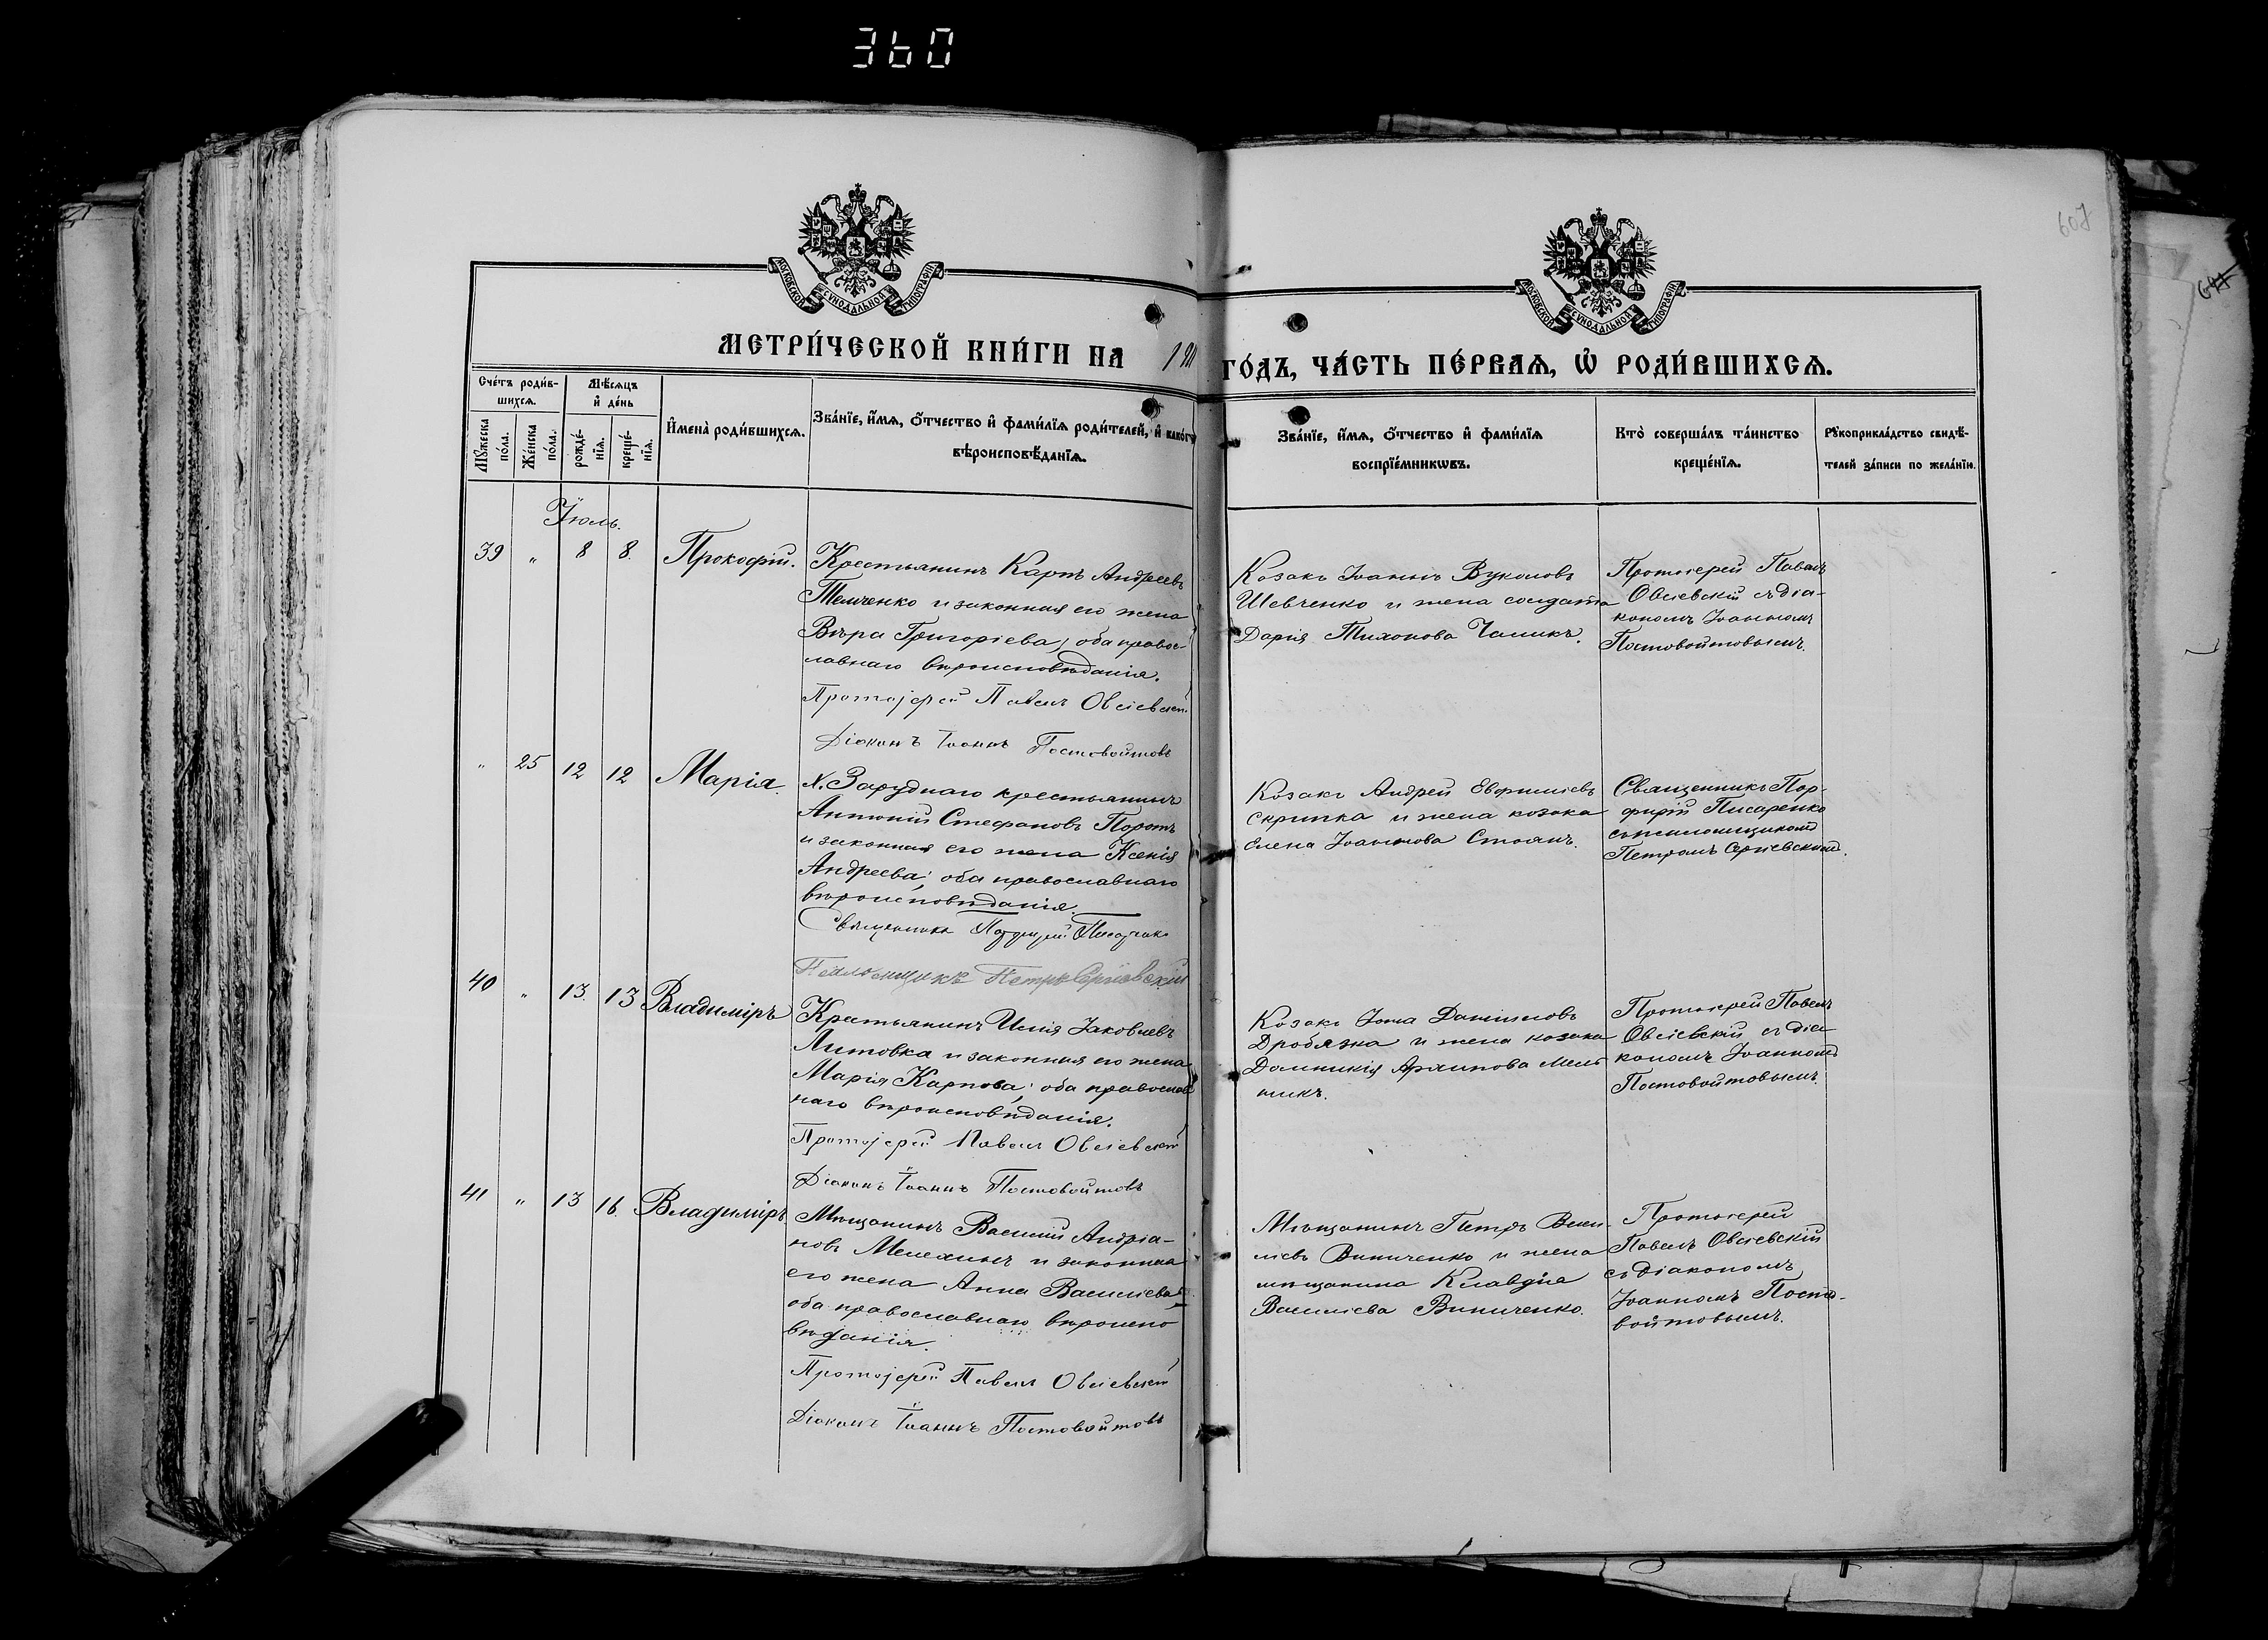 360
607
МОСКОВСКОЙ СѴНОДАЛЬНОЙ ТИПОГРАФІИ
МОСКОВСКОЙ СѴНОДАЛЬНОЙ ТИПОГРАФІИ
МЕТРИ́ЧЕСКОЙ КНИ́ГИ НА
ГО́ДЪ, ЧА́СТЬ ПЕ́РВАѦ, Ѡ҆ РОДИ́ВШИХСѦ.
Сче́тъ роди́в-
шихсѧ.
Мѣ́сѧцъ
и҆ де́нь
Мꙋ́жеска
по́ла.
Же́нска
по́ла.
рожде́-
нїѧ.
креще́-
нїѧ.
И҆мена̀ роди́вшихсѧ.
Зва́нїе, и҆́мѧ, ѻ҆́тчество и҆ фами́лїѧ роди́телей, и҆ како́гѡ
вѣроисповѣ́данїѧ.
Зва́нїе, и҆́мѧ, ѻ҆́тчество и҆ фами́лїѧ
воспрїе́мникѡвъ.
Кто̀ соверша́лъ та́инство
креще́нїѧ.
Рꙋкоприкла́дство свидѣ́-
телей за́писи по жела́нїю.
Іюль.
39 " 8 8. Прокофій.
Крестьянинъ Карпъ Андреевъ
Темченко и законная его жена
Вѣра Григоріева, оба правос-
лавнаго вѣроисповѣданія.
Протоіерей Павелъ Овсіевскій
Діаконъ Іоаннъ Постовойтовъ
Козакъ Іоаннъ Вуколовъ
Шевченко и жена солдата
Дарія Тихонова Чалыкъ.
Протоіерей Павелъ
Овсіевскій съ діа-
кономъ Іоанномъ
Постовойтовымъ.
" 25 12 12 Марія.
х. Заруднаго крестьянинъ
Антоній Стефановъ Поротъ
и законная его жена Ксенія
Андреева; оба православнаго
вѣроисповѣданія.
Священникъ Порфирій Писаренко
Псаломщикъ Петръ Сергіевскій
Козакъ Андрей Евфиміевъ
Скрипка и жена козака
Елена Іоаннова Стоянъ.
Священникъ Пор-
фирій Писаренко
съ псаломщикомъ
Петромъ Сергіевскимъ.
40 " 13. 13 Владиміръ
Крестьянинъ Илія Іаковлевъ
Литовка и законная его жена
Марія Карпова; оба православ
наго вѣроисповѣданія.
Протоіерей Павелъ Овсіевскій
Діаконъ Іоаннъ Постовойтовъ
Козакъ Іона Даниловъ
Дробязка и жена козака
Домникія Архипова Мель
никъ.
Протоіерей Павелъ
Овсіевскій съ діа-
кономъ Іоанномъ
Постовойтовымъ.
41 " 13 16. Владиміръ
Мѣщанинъ Василій Андріа-
новъ Мелехинъ и законная
его жена Анна Василіева
оба православнаго вѣроиспо
вѣданія.
Протоіерей Павелъ Овсіевскій
Діаконъ Іоаннъ Постовойтовъ
Мѣщанинъ Петръ Васи-
ліевъ Винниченко и жена
мѣщанина Клавдія
Василіева Винниченко.
Протоіерей
Павелъ Овсіевскій
съ діакономъ
Іоанномъ Посто-
войтовымъ.